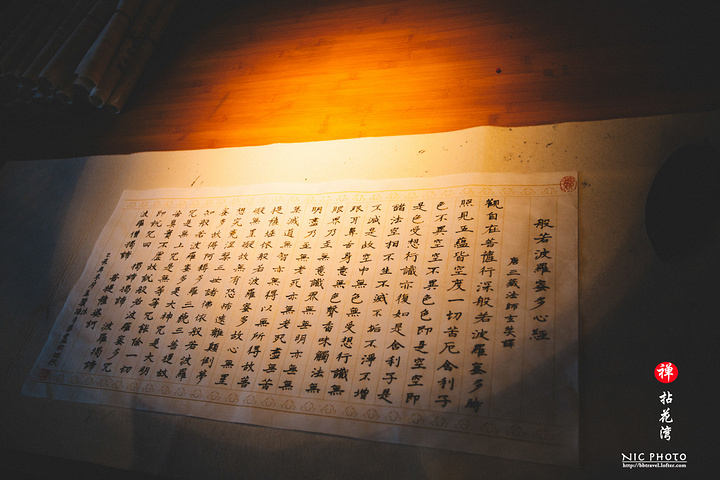 般若波羅蜜多心經
唐三藏法師玄奘譯
觀自在菩薩行深般若波羅蜜多時
照見五蘊皆空度一切苦厄舍利子
色不異空空不異色色即是空空即
是色受想行識亦復如是舍利子是
諸法空相不生不滅不垢不淨不增
不減是故空中無色無受想行識無
眼耳鼻舌身意無色聲香味觸法無
眼界乃至無意識界無無明亦無無
明盡乃至無老死亦無老死盡無苦
集滅道無智亦無得以無所得故菩
提薩埵依般若波羅蜜多故心無罣
礙無罣礙故無有恐怖遠離顛倒夢
想究竟涅槃三世諸佛依般若波羅
蜜多故得阿耨多羅三藐三菩提故
知般若波羅蜜多是大神咒是大明
咒是無上咒是無等等咒能除一切
苦真實不虛故說般若波羅蜜多咒
即說咒曰 揭諦揭諦 波羅揭諦
波羅僧揭諦 菩提薩婆訶
禅
拈花湾
NIC PHOTO
http://bbtravel.lofter.com